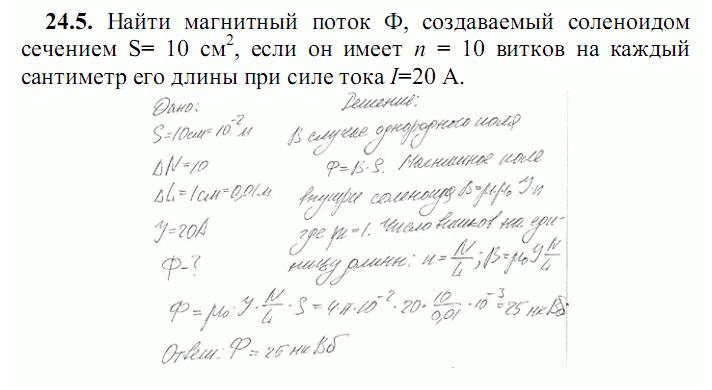 24.5. Найти магнитный поток Ф, создаваемый соленоидом
сечением S= 10 см², если он имеет n = 10 витков на каждый
сантиметр его длины при силе тока I=20 А.
Дано: Решение:
S=10см=10⁻²м В случае однородного поля
ΔN=10 Ф=B·S. Магнитное поле
ΔL=1см=0,01м внутри соленоида B=μμ₀Jn
J=20А где μ=1. Число витков на еди-
Ф-? ницу длины: n=N/L; B=μ₀J N/L
Ф=μ₀·J·N/L·S=4·π·10⁻²·20·10/0,01·10⁻³=25 мкВб
Ответ: Ф=25 мкВб